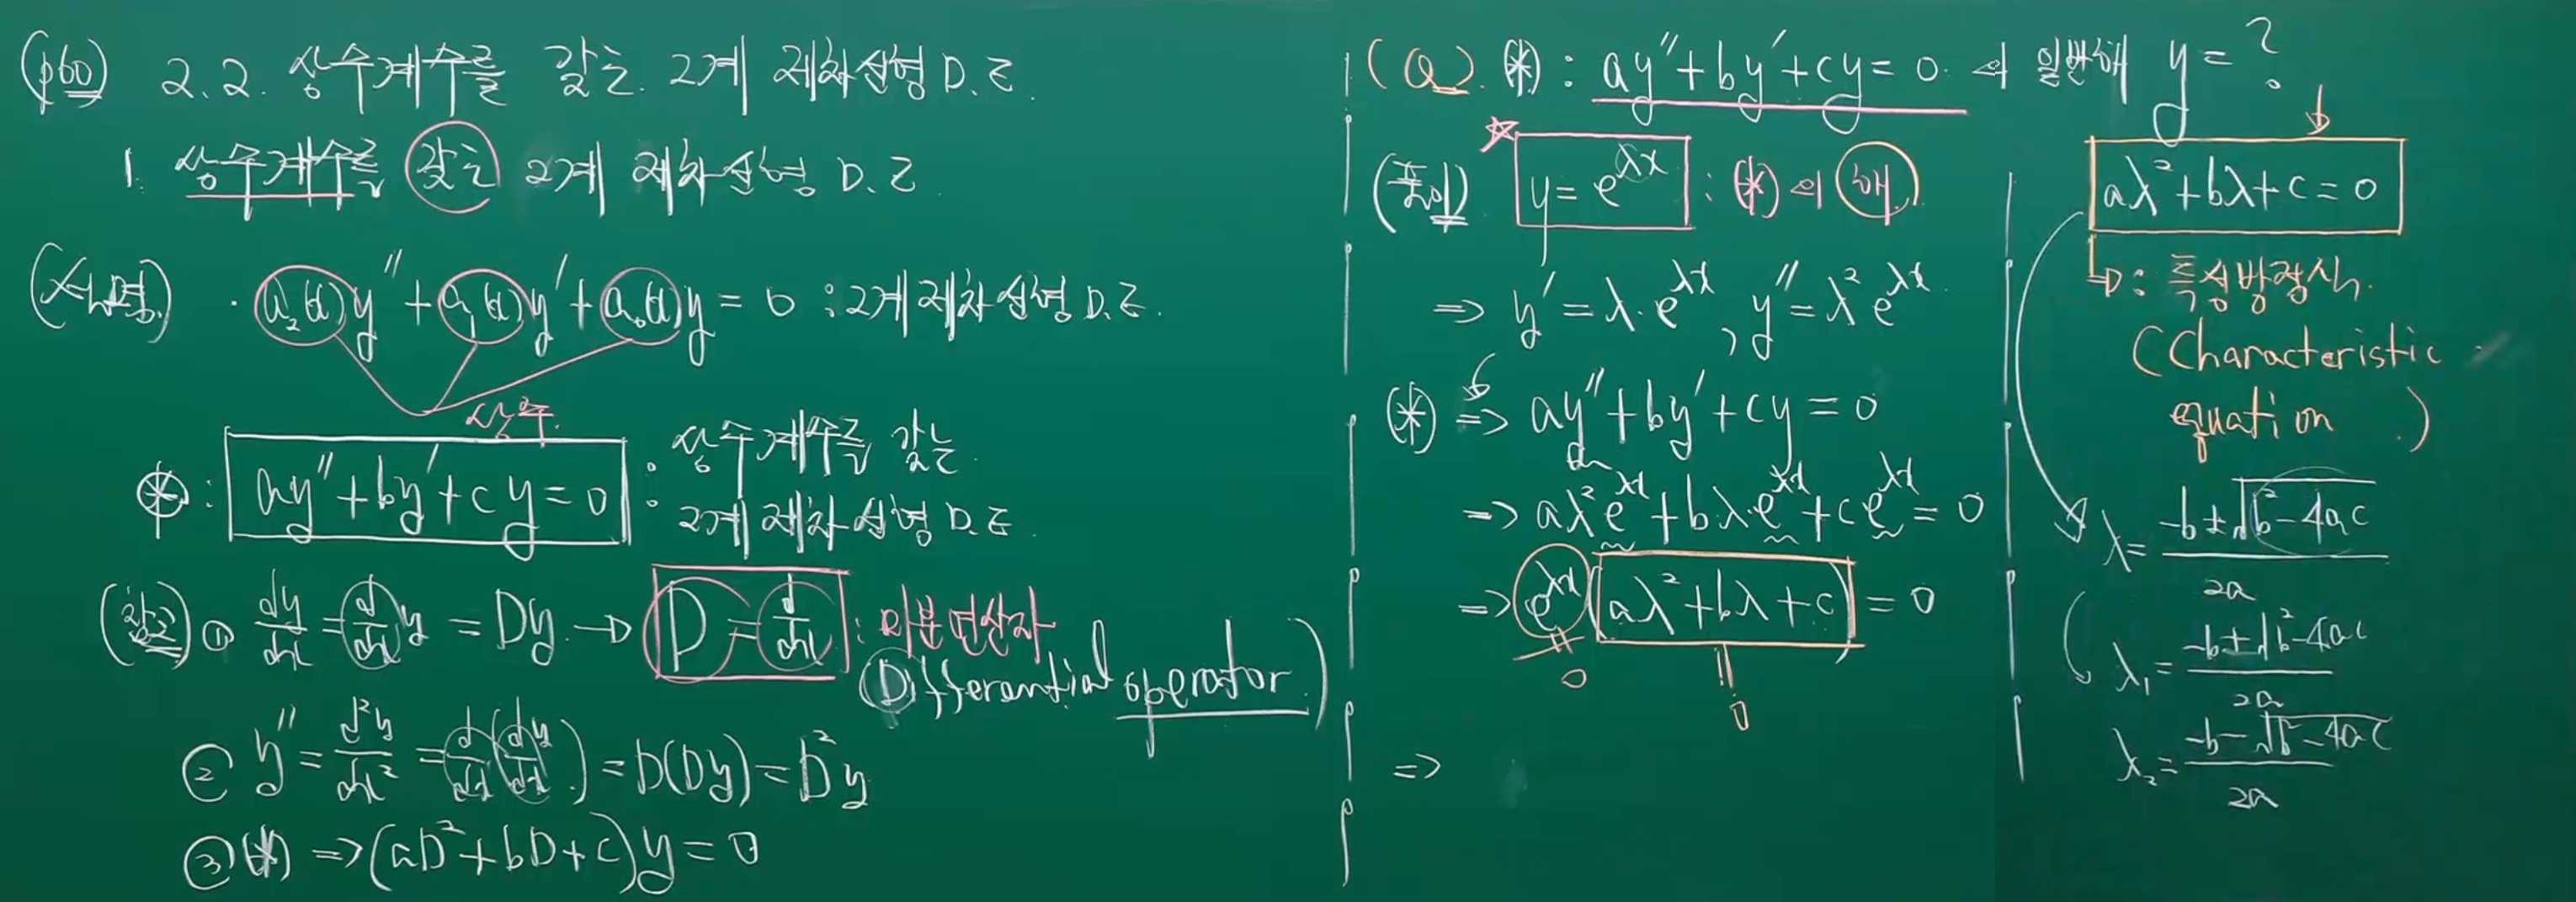 (p60) 2.2. 상수계수를 갖는 2계 제차선형 D.E.
1. 상수계수를 갖는 2계 제차선형 D.E
(설명) · a₂(x)y'' + a₁(x)y' + a₀(x)y = 0 : 2계 제차선형 D.E.
상수.
⊛ : ay'' + by' + cy = 0 : 상수계수를 갖는
2계 제차선형 D.E.
(참고) ① dy/dx = d/dx y = Dy → D = d/dx : 미분연산자
(Differential operator)
② y'' = d²y/dx² = d/dx(dy/dx) = D(Dy) = D²y
③ (*) ⇒ (aD² + bD + c)y = 0
(Q) (*) : ay'' + by' + cy = 0 의 일반해 y = ?
(풀이) ☆ y = e^{λx} : (*)의 해
⇒ y' = λ·e^{λx}, y'' = λ²e^{λx}
(*) ⇒ ay'' + by' + cy = 0
⇒ aλ²e^{λx} + bλ·e^{λx} + ce^{λx} = 0
⇒ e^{λx}(aλ² + bλ + c) = 0
≠ 0
= 0
⇒
aλ² + bλ + c = 0
→ : 특성방정식.
(Characteristic
equation.)
λ = (-b ± √(b² - 4ac)) / 2a
λ₁ = (-b + √(b² - 4ac)) / 2a
λ₂ = (-b - √(b² - 4ac)) / 2a